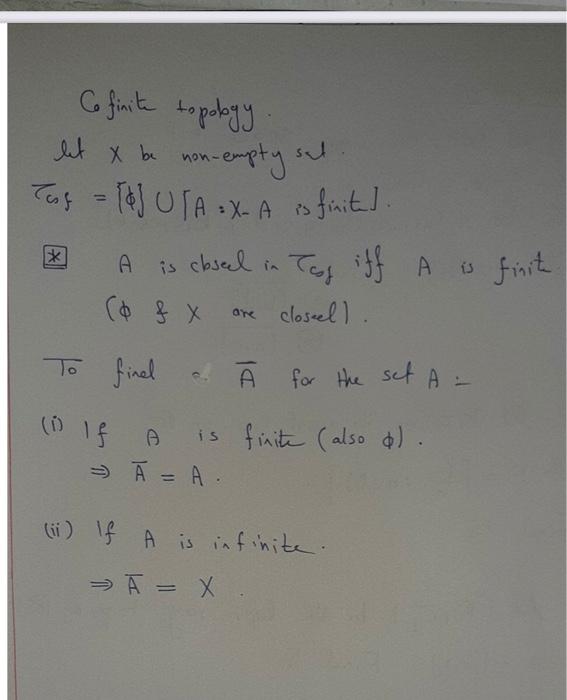 Cofinite topology.
let X be non-empty set.
τcof = {ϕ} ∪ {A : X-A is finite}.
* A is closed in τcof iff A is finite
(ϕ & X are closed).
To find Ā for the set A :-
(i) If A is finite (also ϕ).
⇒ Ā = A.
(ii) If A is infinite.
⇒ Ā = X.